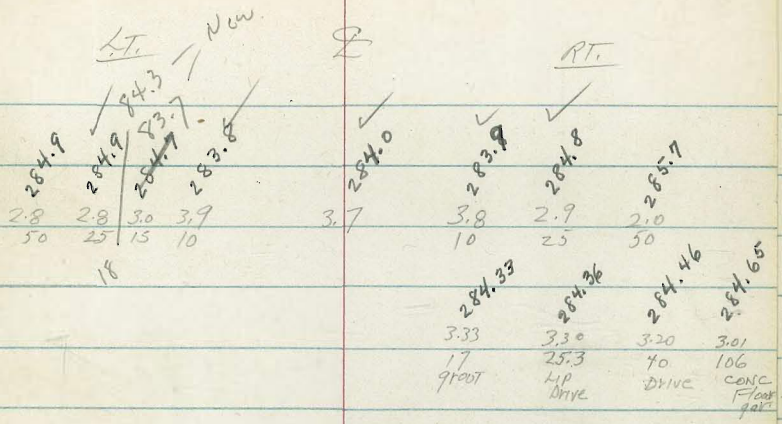 LT. Now ℄ RT.
84.3
83.7
284.9 284.9 284.7 283.8 284.0 283.9 284.8 285.7
2.8 2.8 3.0 3.9 3.7 3.8 2.9 2.0
50 25 15 10 10 25 50
18
284.33 284.36 284.46 284.65
3.33 3.30 3.20 3.01
17 25.3 40 106
Lip Drive CONC
Drive Floor
gar